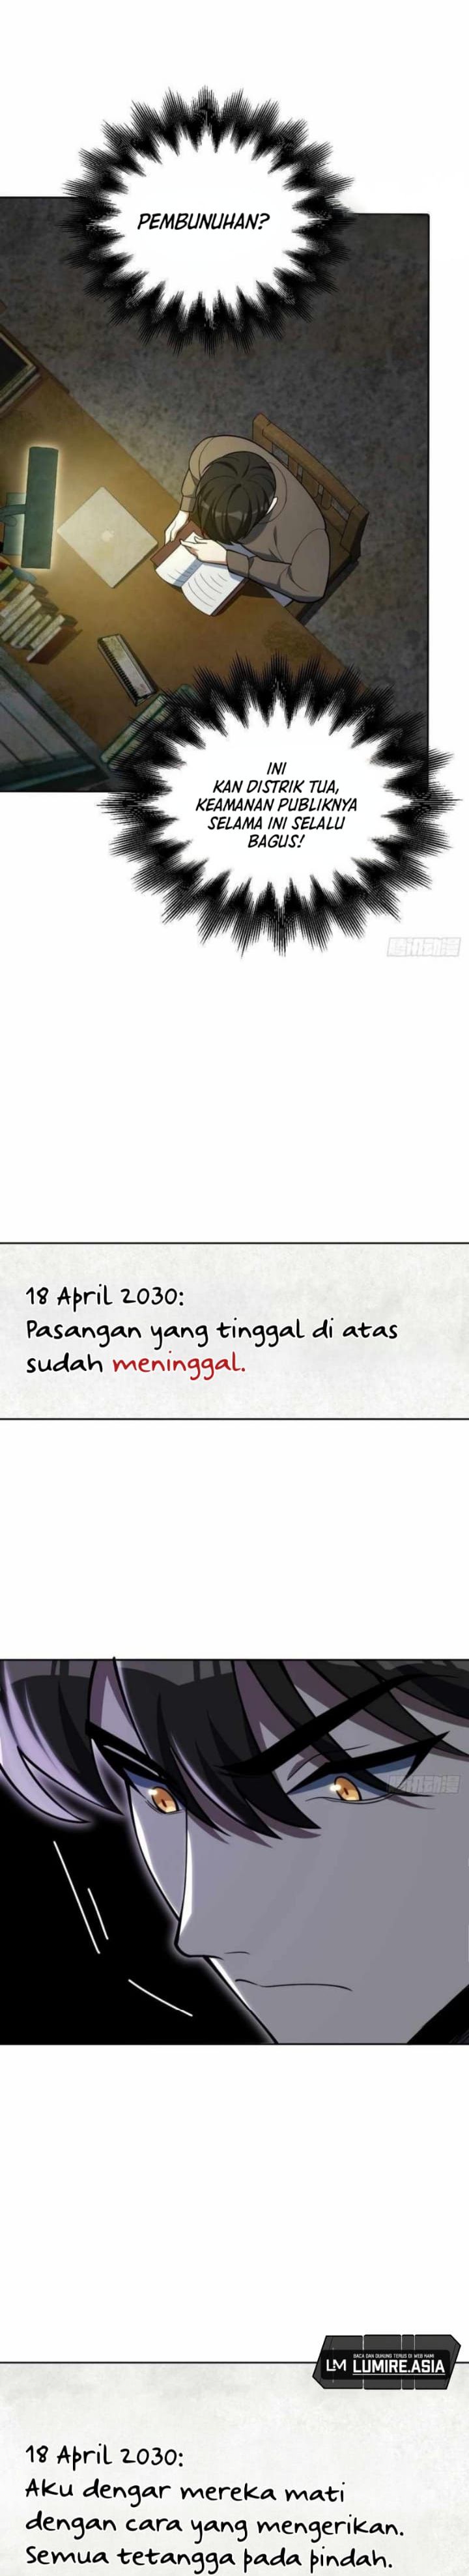 PEMBUNUHAN?
INI
KAN DISTRIK TUA,
KEAMANAN PUBLIKNYA
SELAMA INI SELALU
BAGUS!
腾讯动漫
18 April 2030:
Pasangan yang tinggal di atas
sudah meninggal.
腾讯动漫
BACA DAN DUKUNG TERUS DI WEB KAMI
LM LUMIRE.ASIA
18 April 2030:
Aku dengar mereka mati
dengan cara yang mengerikan.
Semua tetangga pada pindah.